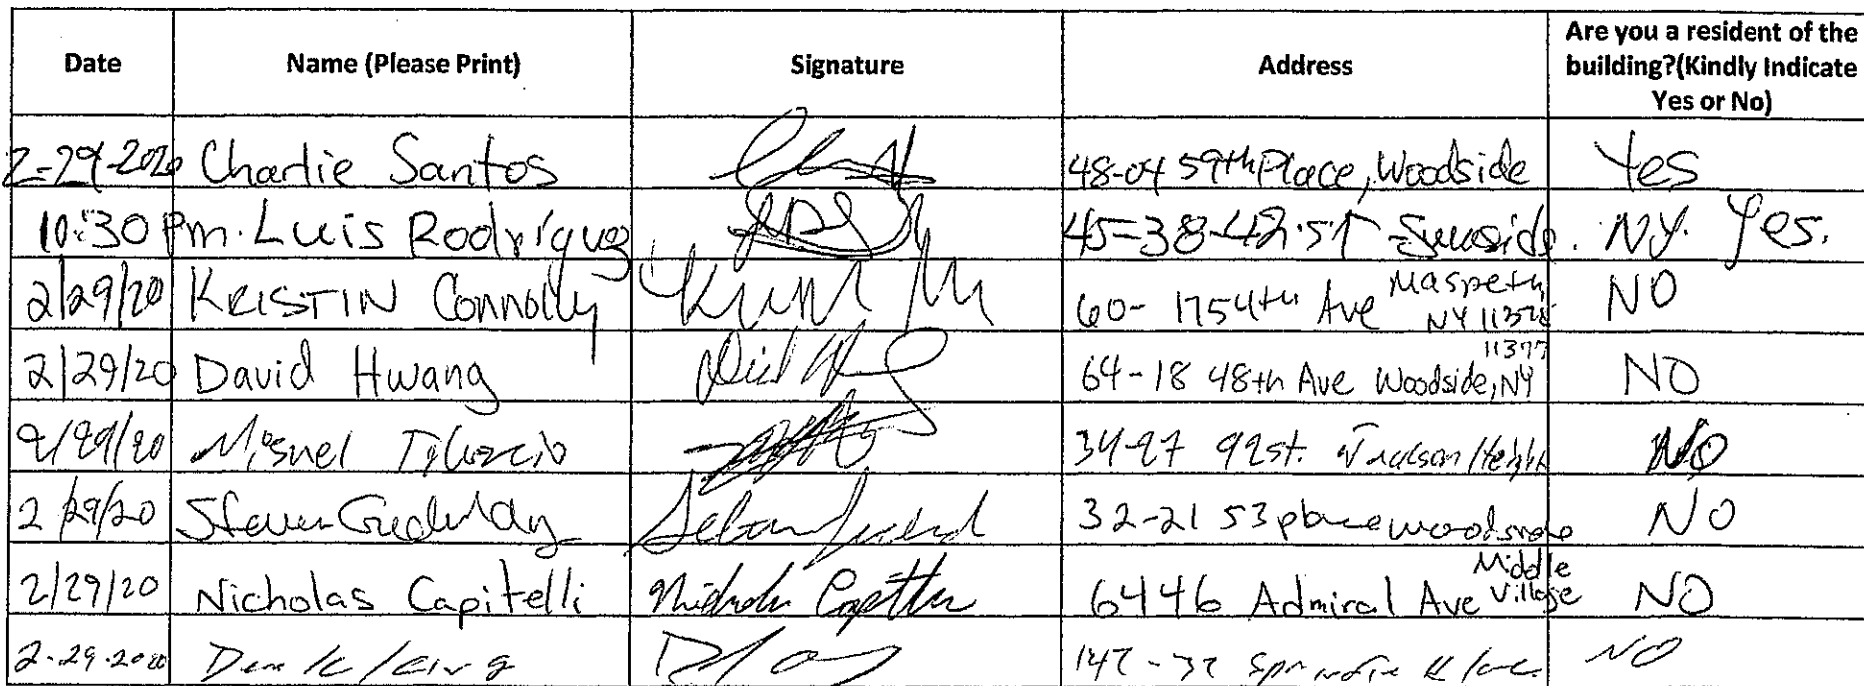 Date Name (Please Print) Signature Address Are you a resident of the building?(Kindly Indicate Yes or No)
2-29-2020 Charlie Santos 48-04 59th Place, Woodside Yes
10:30 Pm. Luis Rodríguez 45-38-42.St Sunside. NY. Yes.
2/29/20 KRISTIN Connolly 60-1754th Ave Maspeth NY 11378 NO
2/29/20 David Hwang 64-18 48th Ave Woodside, NY 11377 NO
2/29/20 Miguel 34-27 92st. Jackson Height NO
2/29/20 Steven 32-21 53 place woodside NO
2/29/20 Nicholas Capitelli 6446 Admiral Ave Middle Village NO
2-29-2020 Derek King NO